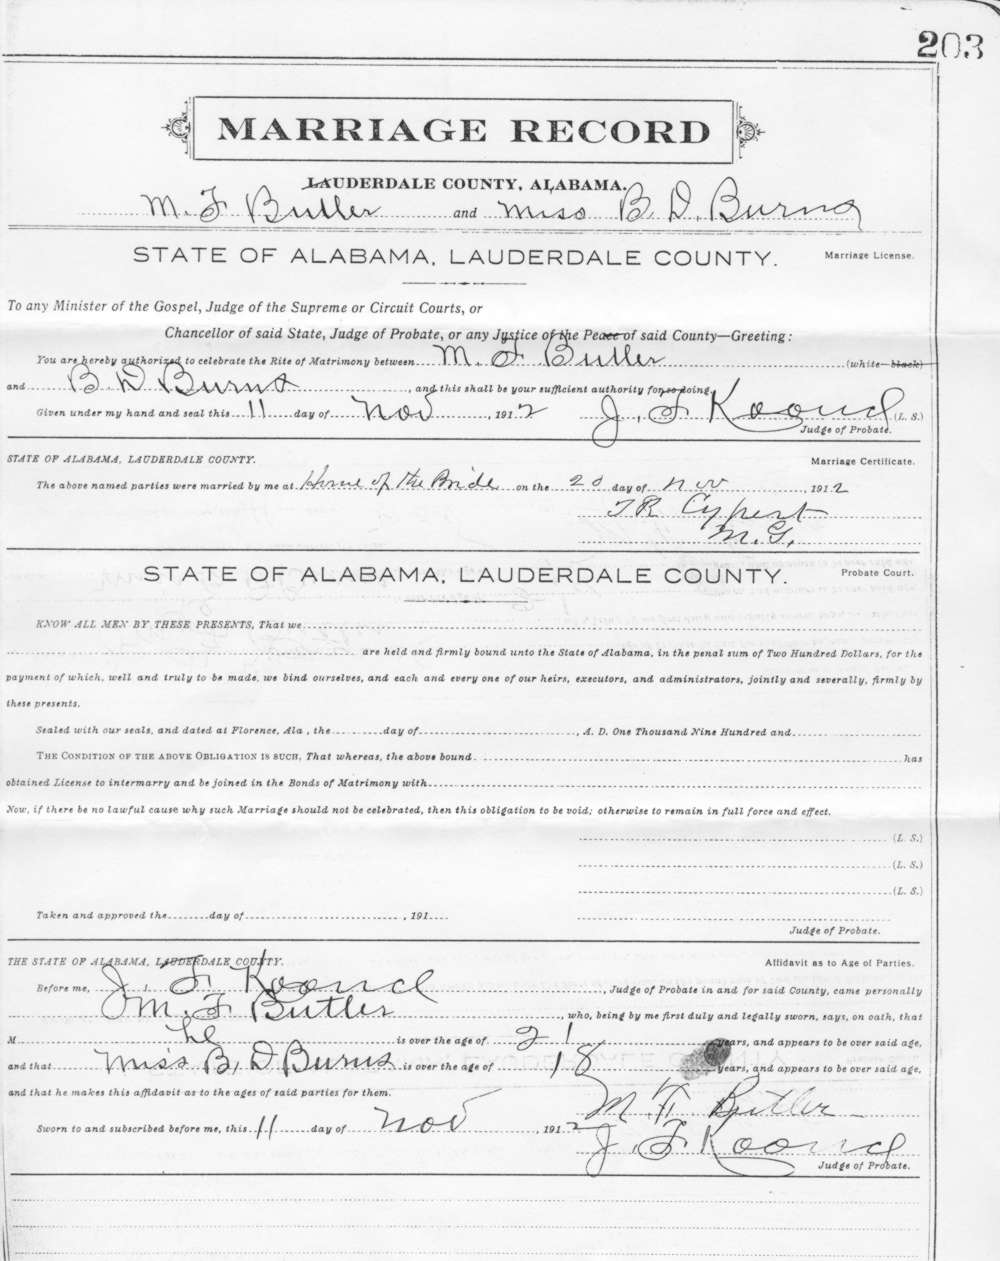 203
MARRIAGE RECORD
LAUDERDALE COUNTY, ALABAMA.
M. F. Butler and Miss B. D. Burns
STATE OF ALABAMA, LAUDERDALE COUNTY. Marriage License.
To any Minister of the Gospel, Judge of the Supreme or Circuit Courts, or
Chancellor of said State, Judge of Probate, or any Justice of the Peace of said County—Greeting:
You are hereby authorized to celebrate the Rite of Matrimony between M. F. Butler (white—black)
and B. D. Burns, and this shall be your sufficient authority for so doing.
Given under my hand and seal this 11 day of Nov, 1912 J. F. Koonce (L. S.)
Judge of Probate.
STATE OF ALABAMA, LAUDERDALE COUNTY. Marriage Certificate.
The above named parties were married by me at Home of the Bride on the 20 day of Nov, 1912
T R Cypert
M. G.
STATE OF ALABAMA, LAUDERDALE COUNTY. Probate Court.
KNOW ALL MEN BY THESE PRESENTS, That we
are held and firmly bound unto the State of Alabama, in the penal sum of Two Hundred Dollars, for the
payment of which, well and truly to be made, we bind ourselves, and each and every one of our heirs, executors, and administrators, jointly and severally, firmly by
these presents.
Sealed with our seals, and dated at Florence, Ala., the day of, A. D. One Thousand Nine Hundred and
THE CONDITION OF THE ABOVE OBLIGATION IS SUCH, That whereas, the above bound has
obtained License to intermarry and be joined in the Bonds of Matrimony with
Now, if there be no lawful cause why such Marriage should not be celebrated, then this obligation to be void; otherwise to remain in full force and effect.
(L. S.)
(L. S.)
(L. S.)
Taken and approved the day of, 191
Judge of Probate.
THE STATE OF ALABAMA, LAUDERDALE COUNTY. Affidavit as to Age of Parties.
Before me, J. F. Koonce, Judge of Probate in and for said County, came personally
M. F. Butler, who, being by me first duly and legally sworn, says, on oath, that
M he is over the age of 21 years, and appears to be over said age,
and that Miss B. D Burns is over the age of 18 years, and appears to be over said age,
and that he makes this affidavit as to the ages of said parties for them.
M. F. Butler
Sworn to and subscribed before me, this 11 day of Nov, 1912
J. F. Koonce
Judge of Probate.